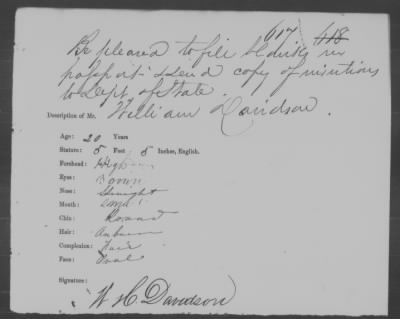 617 418
Be pleased to file & dup
passport & send copy of
to Dept. of State.
Description of Mr. William Davidson.
Age: 20 Years
Stature: 5 Feet 5 Inches, English.
Forehead: High
Eyes: Brown
Nose: Straight
Mouth: Small
Chin: Round
Hair: Auburn
Complexion: Fair
Face: Oval
Signature:
W H Davidson